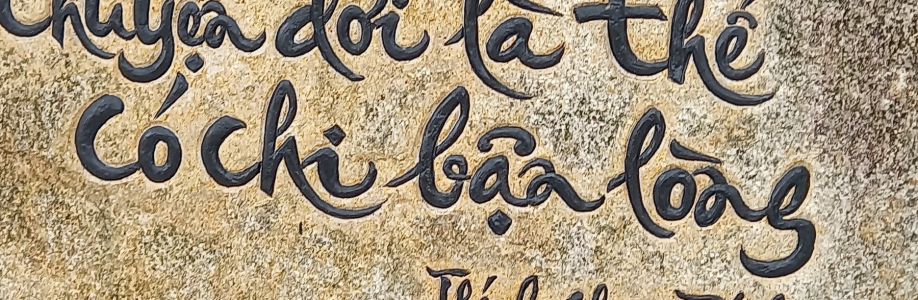 Chuyện đời là thế
có chi bận lòng